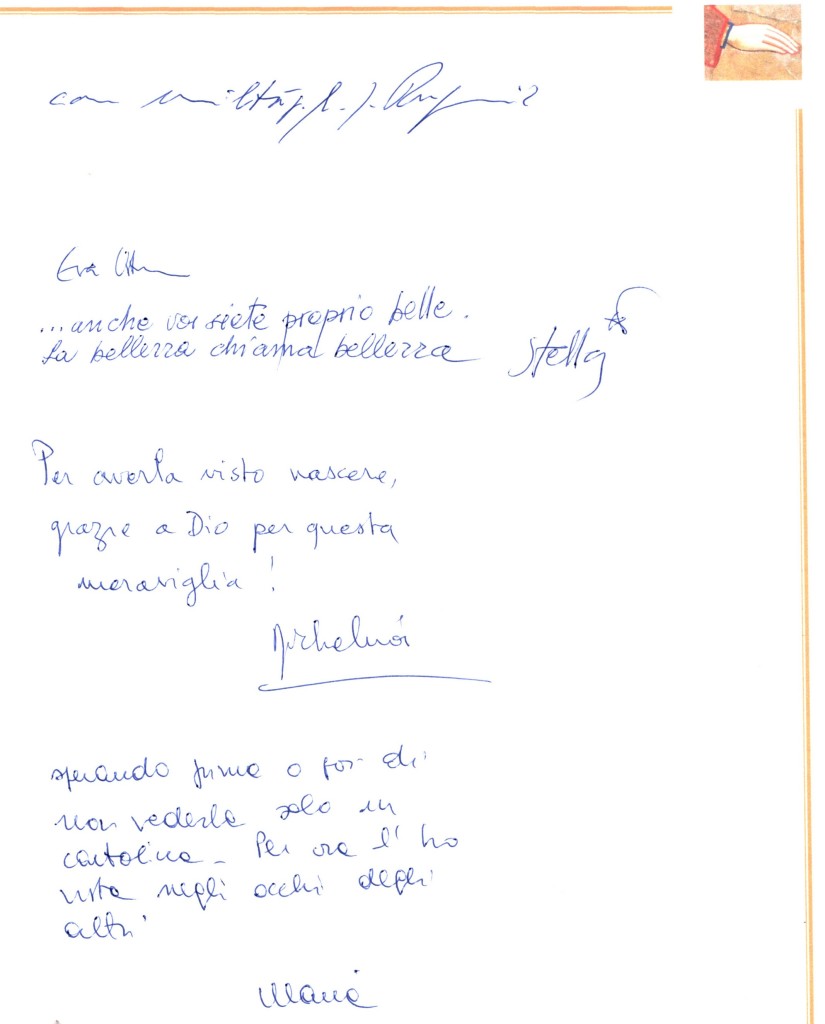 con umiltà p.
Eva
...anche voi siete proprio belle.
La bellezza chiama bellezza
Stella
Per averla visto nascere,
grazie a Dio per questa
meraviglia!
sperando prima o poi di
non vederla solo in
cartolina - Per ora l'ho
vista negli occhi degli
altri
Maria